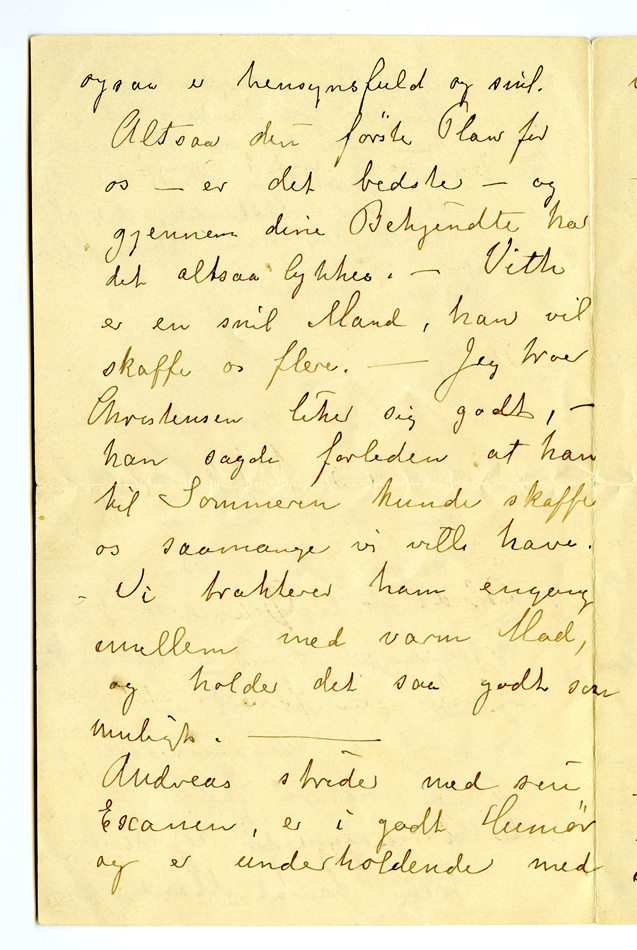 ogsaa er hensynsfuld og snil.
Altsaa den første Plan for
os — er det bedste — og
gjennem dine Bekjendte har
det altsaa lykkes. — Vith
er en snil Mand, han vil
skaffe os flere. — Jeg troer
Christensen liker sig godt, —
han sagde forleden at han
til Sommeren kunde skaffe
os saamange vi ville have.
- Vi trakterer ham engang
imellem med varm Mad,
og holder det saa godt som
muligt. —
Andreas strider med sin
Examen, er i godt Humør
og er underholdende med